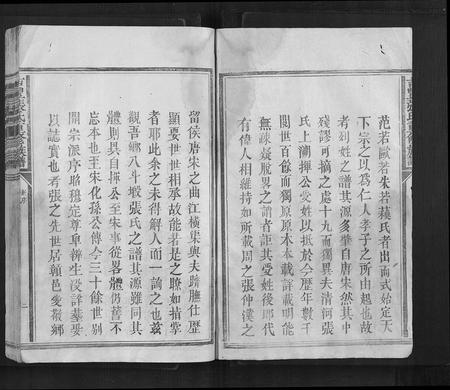 范若歐若朱若蘓氏者出而式始定天
下宗之以爲仁人孝子之所由起也故
考列姓之譜其源多肇自唐宋然其中
殘謬可摘之處十九而獨異夫清河張
氏上溯揮公受姓以抵於今歴年數千
閲世百餘而獨原原本本載詳載明能
無疎窺脱畧之譜者詎其受姓後即代
有偉人相維持如所載周之張仲漢之
留侯唐宋之曲江橫渠與夫躋膴仕歷
顯要世世相承故能若是之瞭如指掌
者耶此余之未得解人而一讀之也茲
觀吾鄉八斗塅張氏之譜其源雖同其
體則具自揮公至宋事從畧體仍舊不
忘本也至宋化孫公傳今三十餘世別
開宗派序昭穆定尊卑辨生没詳墓娶
以誌實也考張之先世居頼邑愛敬鄉